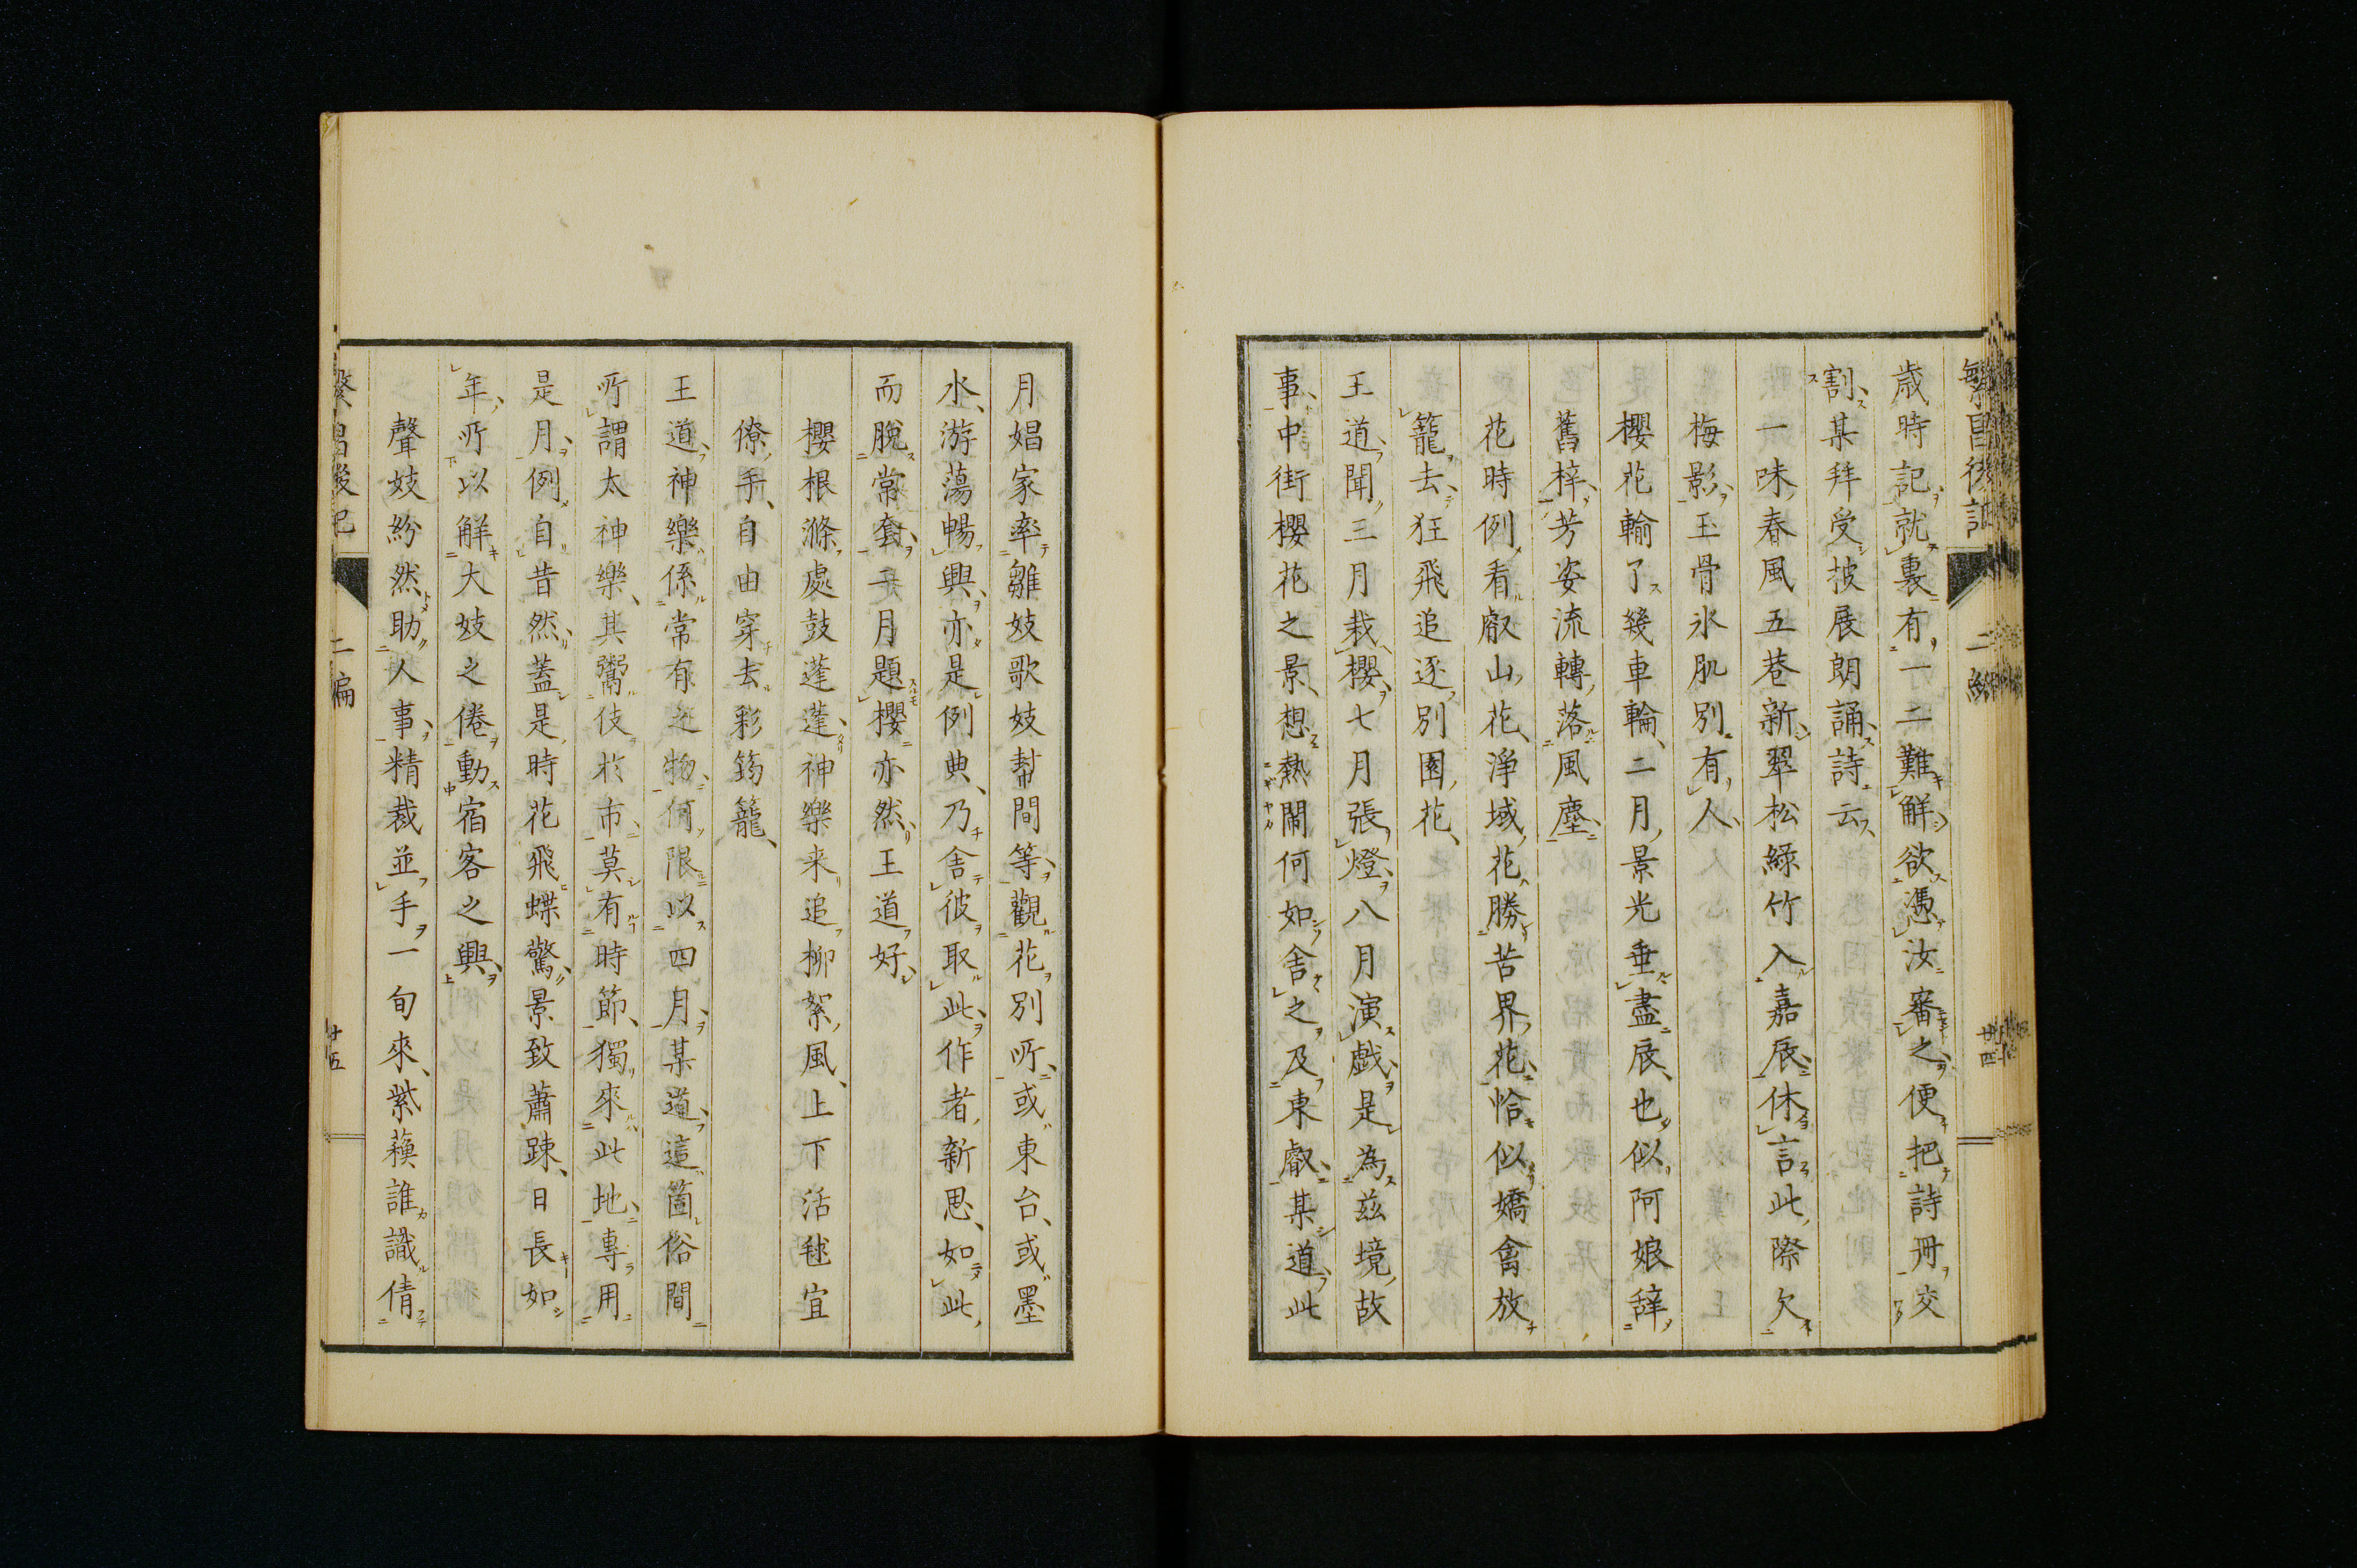 繁昌後記 二編 廿四
歳時記就裏有一二難解欲憑汝審之便把詩冊交
割某拜受披展朗誦詩云
一味春風五巷新翠松緑竹入嘉辰休言此際欠
梅影玉骨氷肌別有人
櫻花輸了幾車輪二月景光垂盡辰也似阿娘辞
舊梓芳姿流轉落風塵
花時例看叡山花淨域花勝苦界花恰似嬌禽放
籠去狂飛追逐別園花
王道聞三月栽櫻七月張燈八月演戯是為茲境故
事中街櫻花之景想熱鬧何如舎之及東叡某道此
月娼家率雛妓歌妓幇間等觀花別所或東台或墨
水游蕩暢興亦是例典乃舎彼取此作者新思如此
而脫常套二月題櫻亦然王道好
櫻根滌處鼓蓬蓬神樂来追柳絮風上下活毬宜
僚手自由穿去彩篘籠
王道神樂係常有之物何限以四月某道這箇俗間
所謂太神樂其鬻伎於市莫有時節獨來此地專用
是月例自昔然蓋是時花飛蝶驚景致蕭踈日長如
年所以解大妓之倦動宿客之興
聲妓紛然助人事精裁並手一旬來紫䕷誰識倩
繁昌後記 二編 廿五